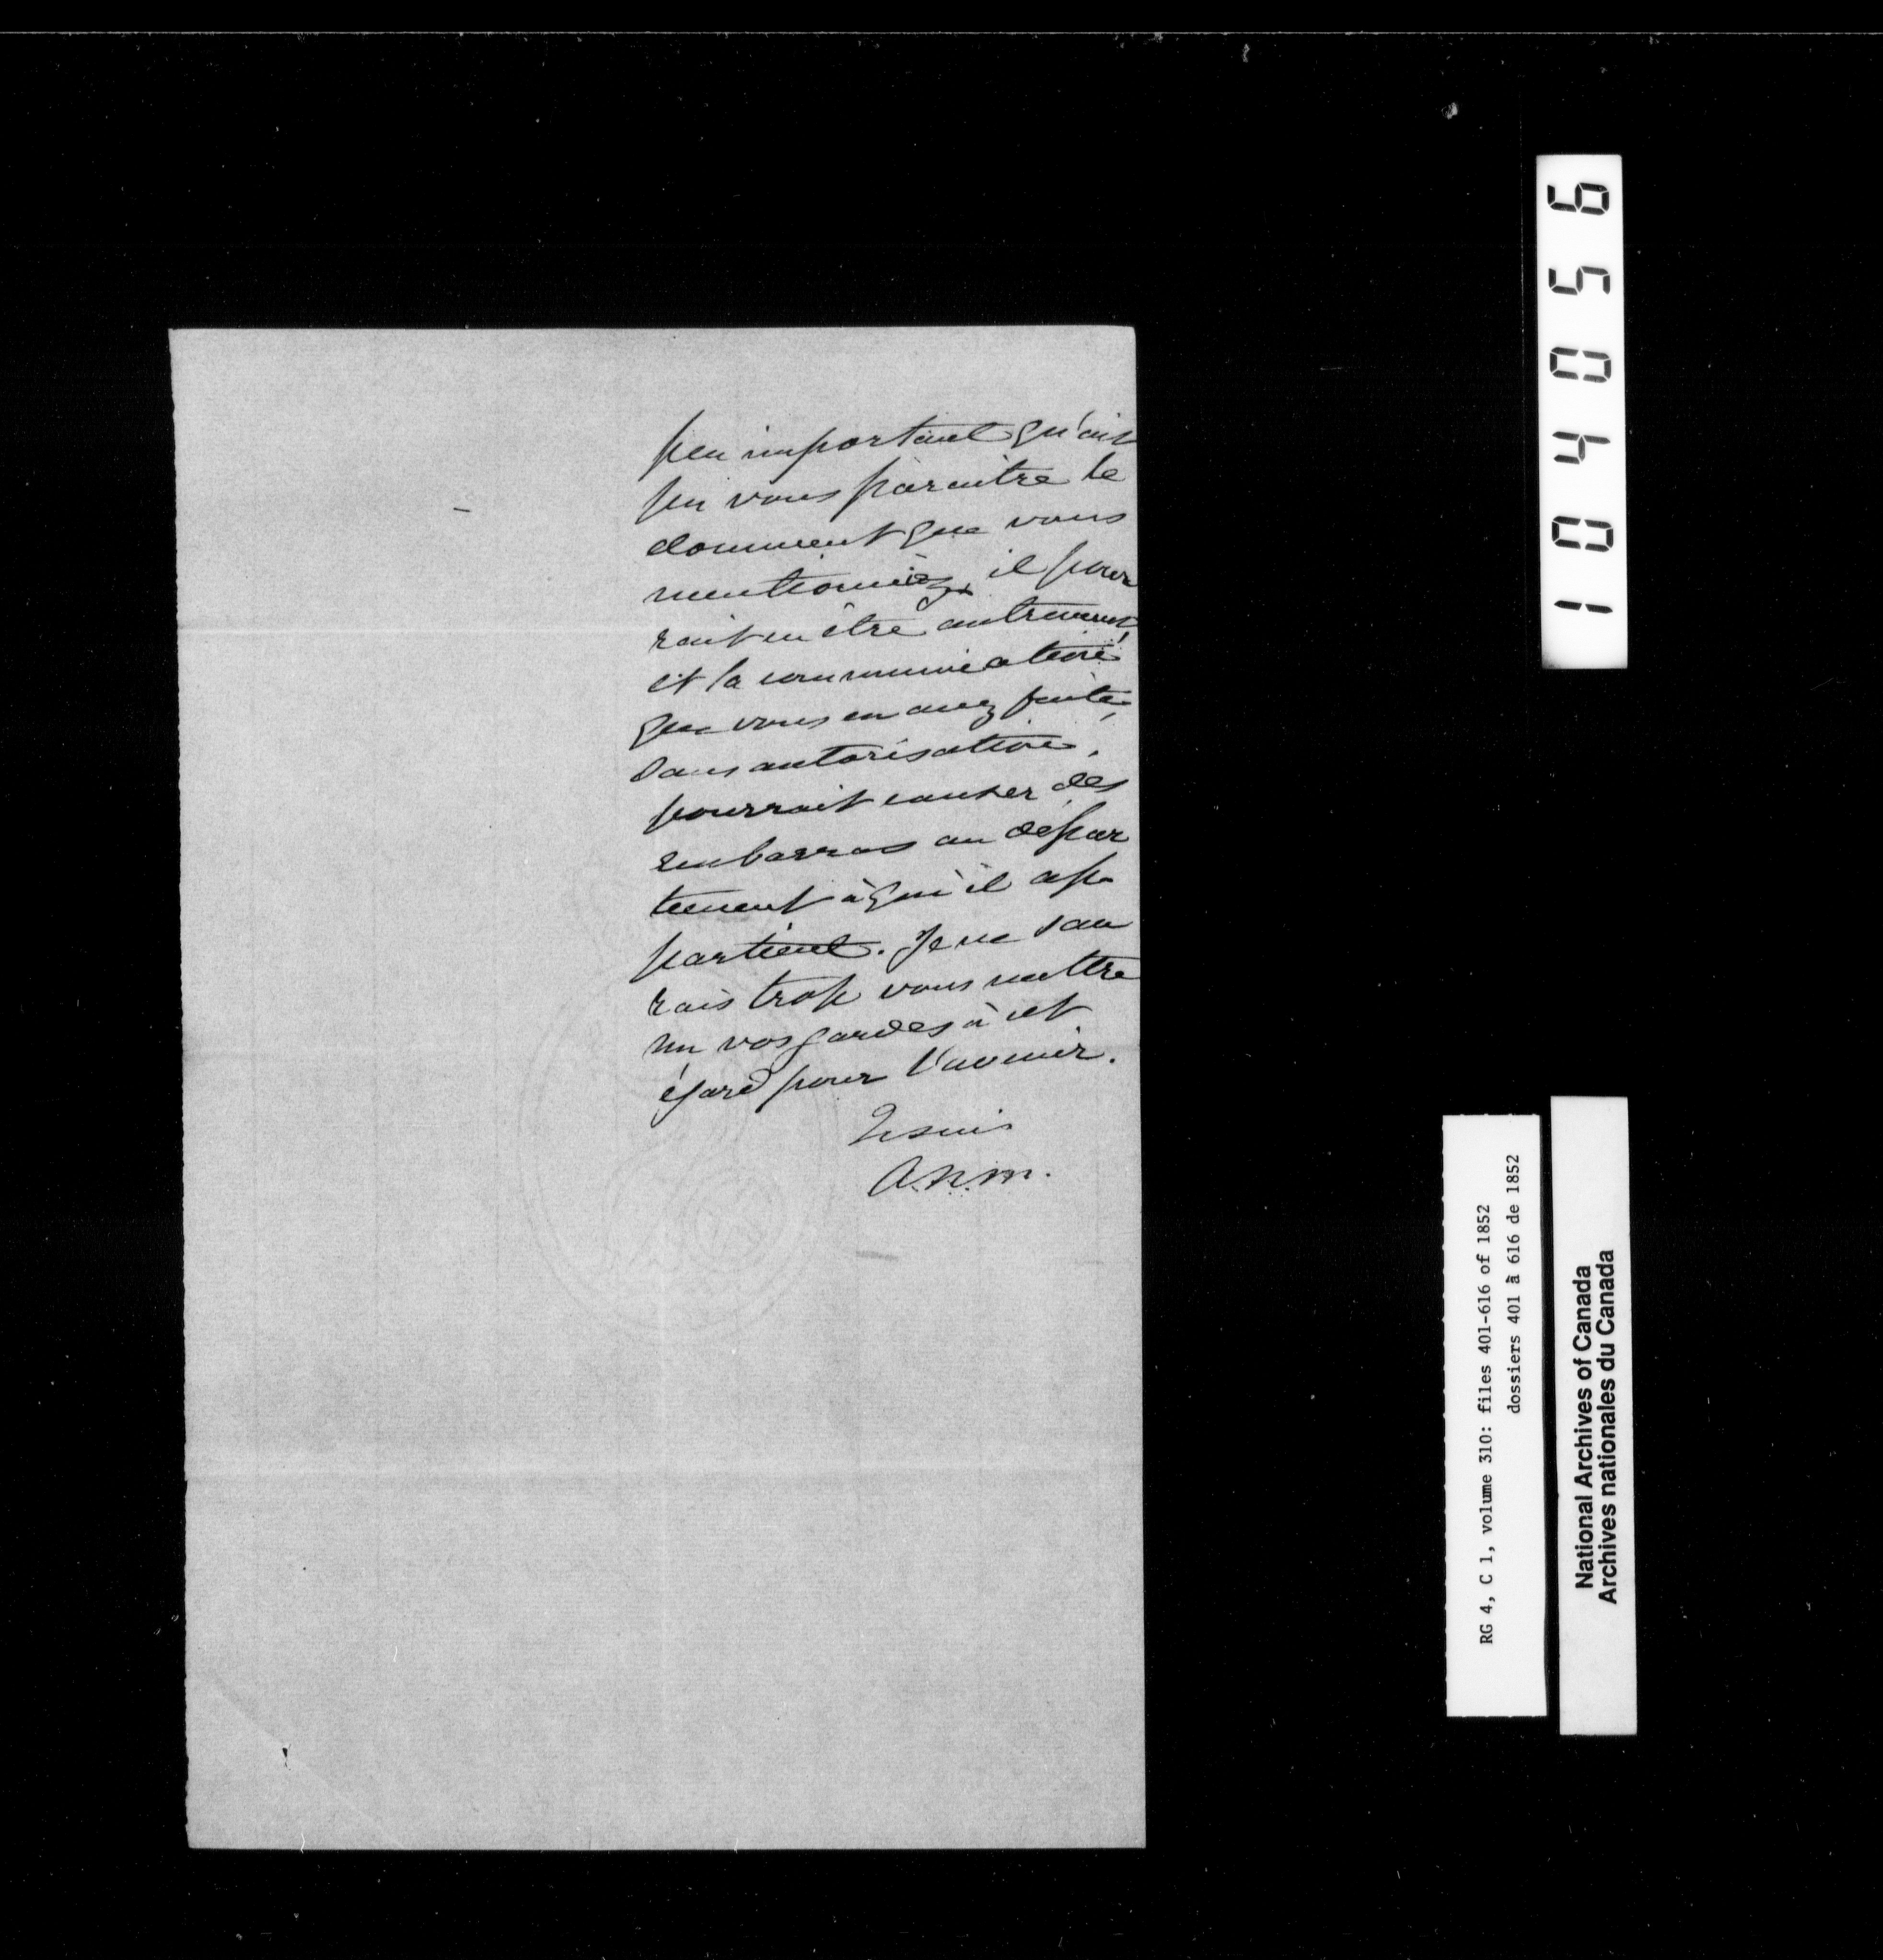 peu important qu'ait
pu vous paraitre le
document que vous
mentionniez, il pour
rait en être autrement,
et la communication
que vous en avez faite,
sans autorisation,
pourrait causer des
embarras au dépar
tement à qui il ap
partient. Je ne sau
rais trop vous mettre
sur vos gardes à cet
égard pour l'avenir.
Je suis
A.N.M.
104056
RG 4, C 1, volume 310: files 401-616 of 1852
dossiers 401 à 616 de 1852
National Archives of Canada
Archives nationales du Canada